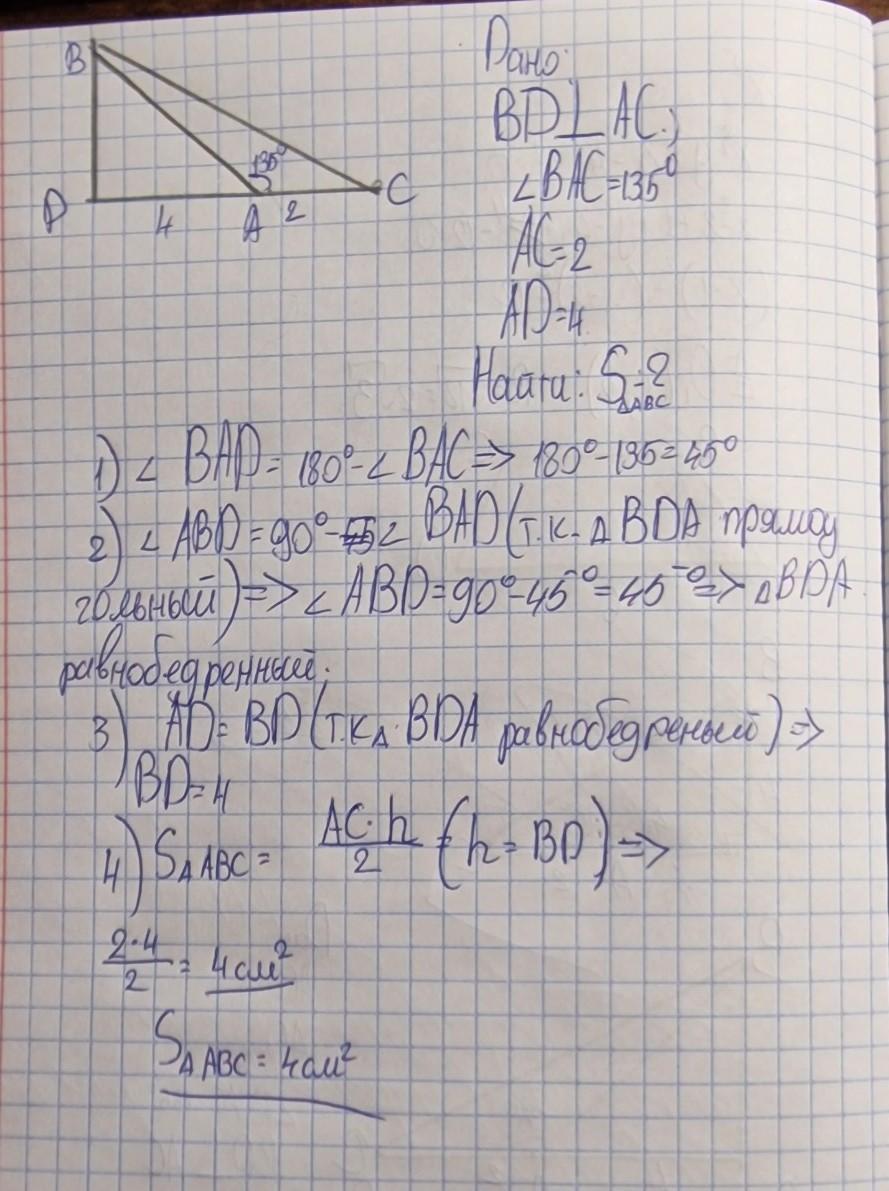 B
135°
D
4
A
2
C
Дано:
BD⊥AC;
∠BAC=135°
AC=2
AD=4
Найти: S△ABC-?
1) ∠ BAD = 180°-∠ BAC => 180°-135=45°
2) ∠ ABD = 90°-∠ BAD (т.к. △ BDA прямоу
гольный) => ∠ ABD = 90°-45° = 45° => △BDA
равнобедренный.
3) AD = BD (т.к △ BDA равнобедреный) =>
BD=4
4) S△ABC = AC·h/2 (h = BD) =>
2·4/2 = 4см²
S△ABC = 4см²